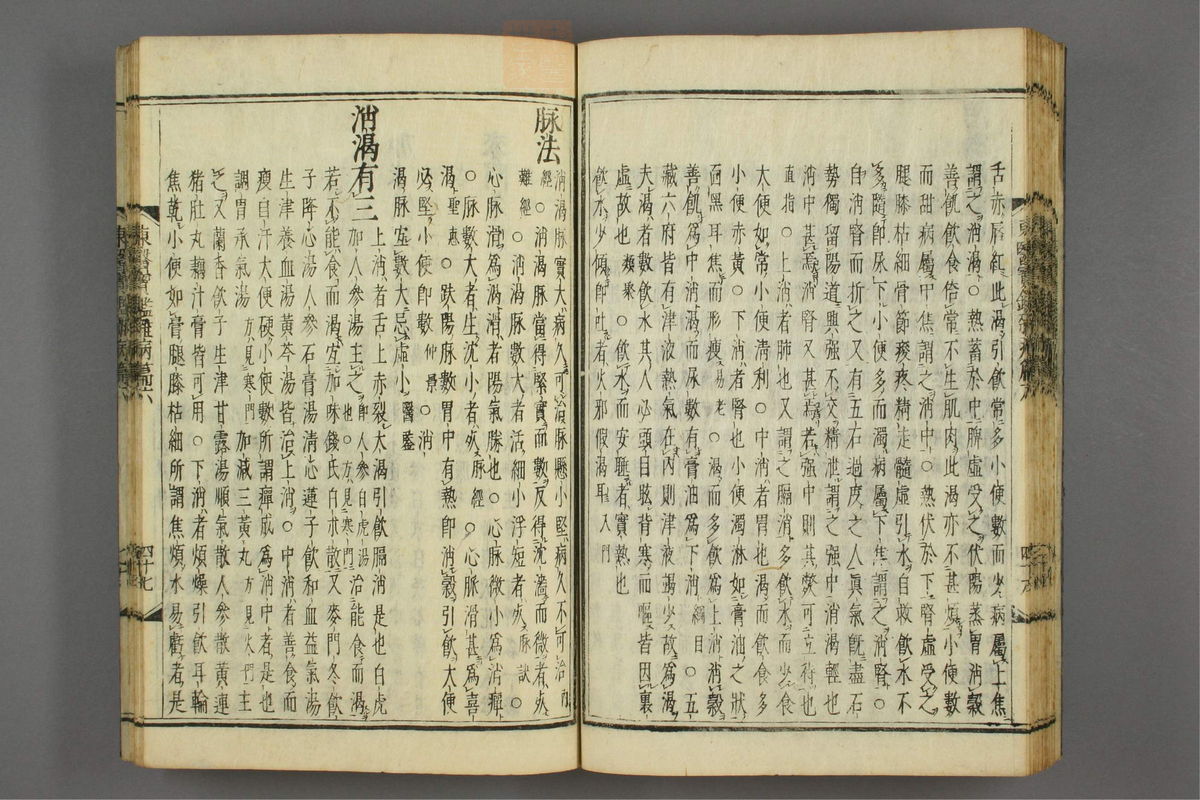 舌赤唇紅此渴引飮常多小便數而少病屬上焦
謂之消渴○熱蓄於中脾虛受之伏陽蒸胃消穀
善飢飮食倍常不生肌肉此渴亦不甚煩小便數
而甜病屬中焦謂之消中○熱伏於下腎虛受之
腿膝枯細骨節痠疼精走髓虛引水自救飮水不
多隨即尿下小便多而濁病屬下焦謂之消腎○
自消腎而折之又有五石過度之人眞氣旣盡石
勢獨留陽道興强不交精泄謂之强中消渴輕也
消中甚焉消腎又甚焉若强中則其斃可立待也
直指○上消者肺也又謂之膈消多飮水而少食
大便如常小便淸利○中消者胃也渴而飮食多
小便赤黃○下消者腎也小便濁淋如膏油之狀
面黑耳焦而形瘦易老○渴而多飮爲上消消穀
善飢爲中消渴而尿數有膏油爲下消綱目○五
藏六府皆有津液熱氣在內則津液竭少故爲渴
夫渴者數飮水其人必頭目眩背寒而嘔皆因裏
虛故也類聚○飮水而安睡者實熱也
飮水少頃即吐者火邪假渴耳入門
脉法
消渴脉實大病久可治脉懸小堅病久不可治內
經○消渴脉當得緊實而數反得沈濇而微者死
難經○消渴脉數大者活細小浮短者死脉訣○
心脉滑爲渴滑者陽氣勝也○心脉微小爲消癉
○脉數大者生沈小者死脉經○心脉滑甚爲喜
渴聖惠○趺陽脉數胃中有熱即消穀引飮大便
必堅小便即數仲景○消
渴脉宜數大忌虛小醫鑑
消渴有三
上消者舌上赤裂大渴引飮膈消是也白虎
加人參湯主之即人參白虎湯也方見寒門能食而渴
若不能食而渴宜加味錢氏白朮散又麥門冬飮
子降心湯人參石膏湯淸心蓮子飮和血益氣湯
生津養血湯黃芩湯皆治上消○中消者善食而
瘦自汗大便硬小便數所謂癉成爲消中者是也
調胃承氣湯方見寒門加減三黃丸方見火門主
之又蘭香飮子生津甘露湯順氣散人參散黃連
猪肚丸藕汁膏皆可用○下消者煩燥引飮耳輪
焦乾小便如膏腿膝枯細所謂焦煩水易虧者是